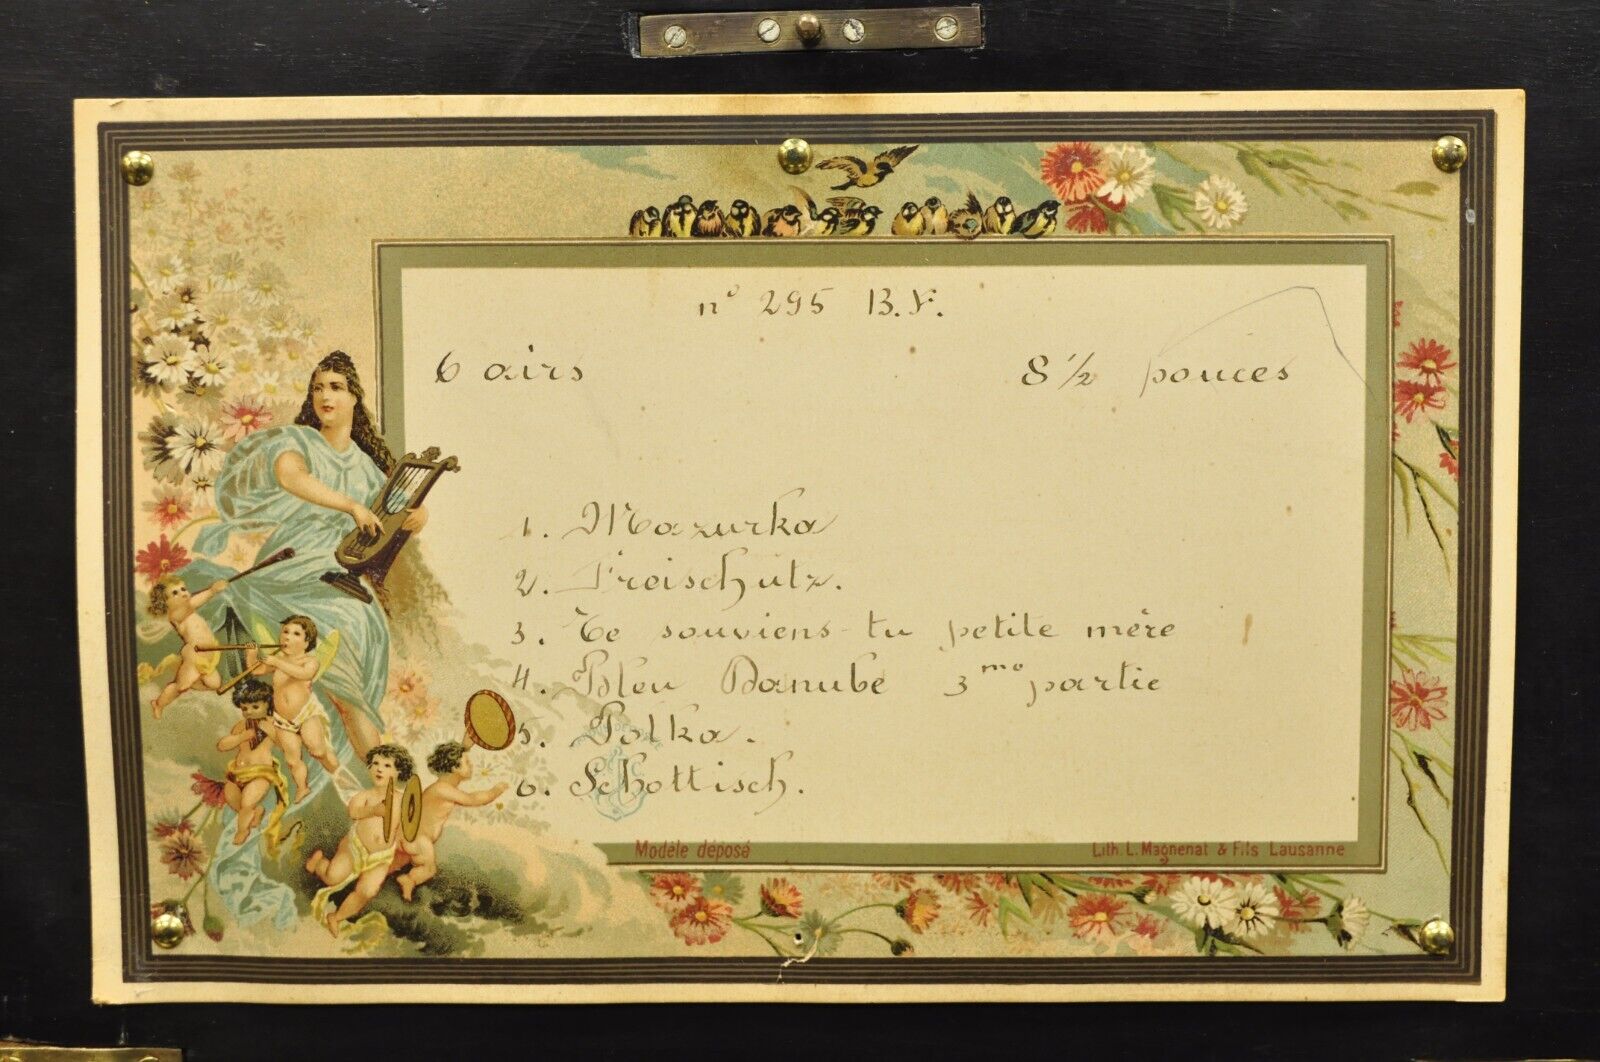 n° 295 B.F.
6 airs 8 1/2 pouces
1. Mazurka
2. Freischutz.
3. Te souviens-tu petite mère
4. Bleu Danube 3me partie
5. Polka.
6. Schottisch.
Modèle déposé Lith. L. Magnenat & Fils Lausanne